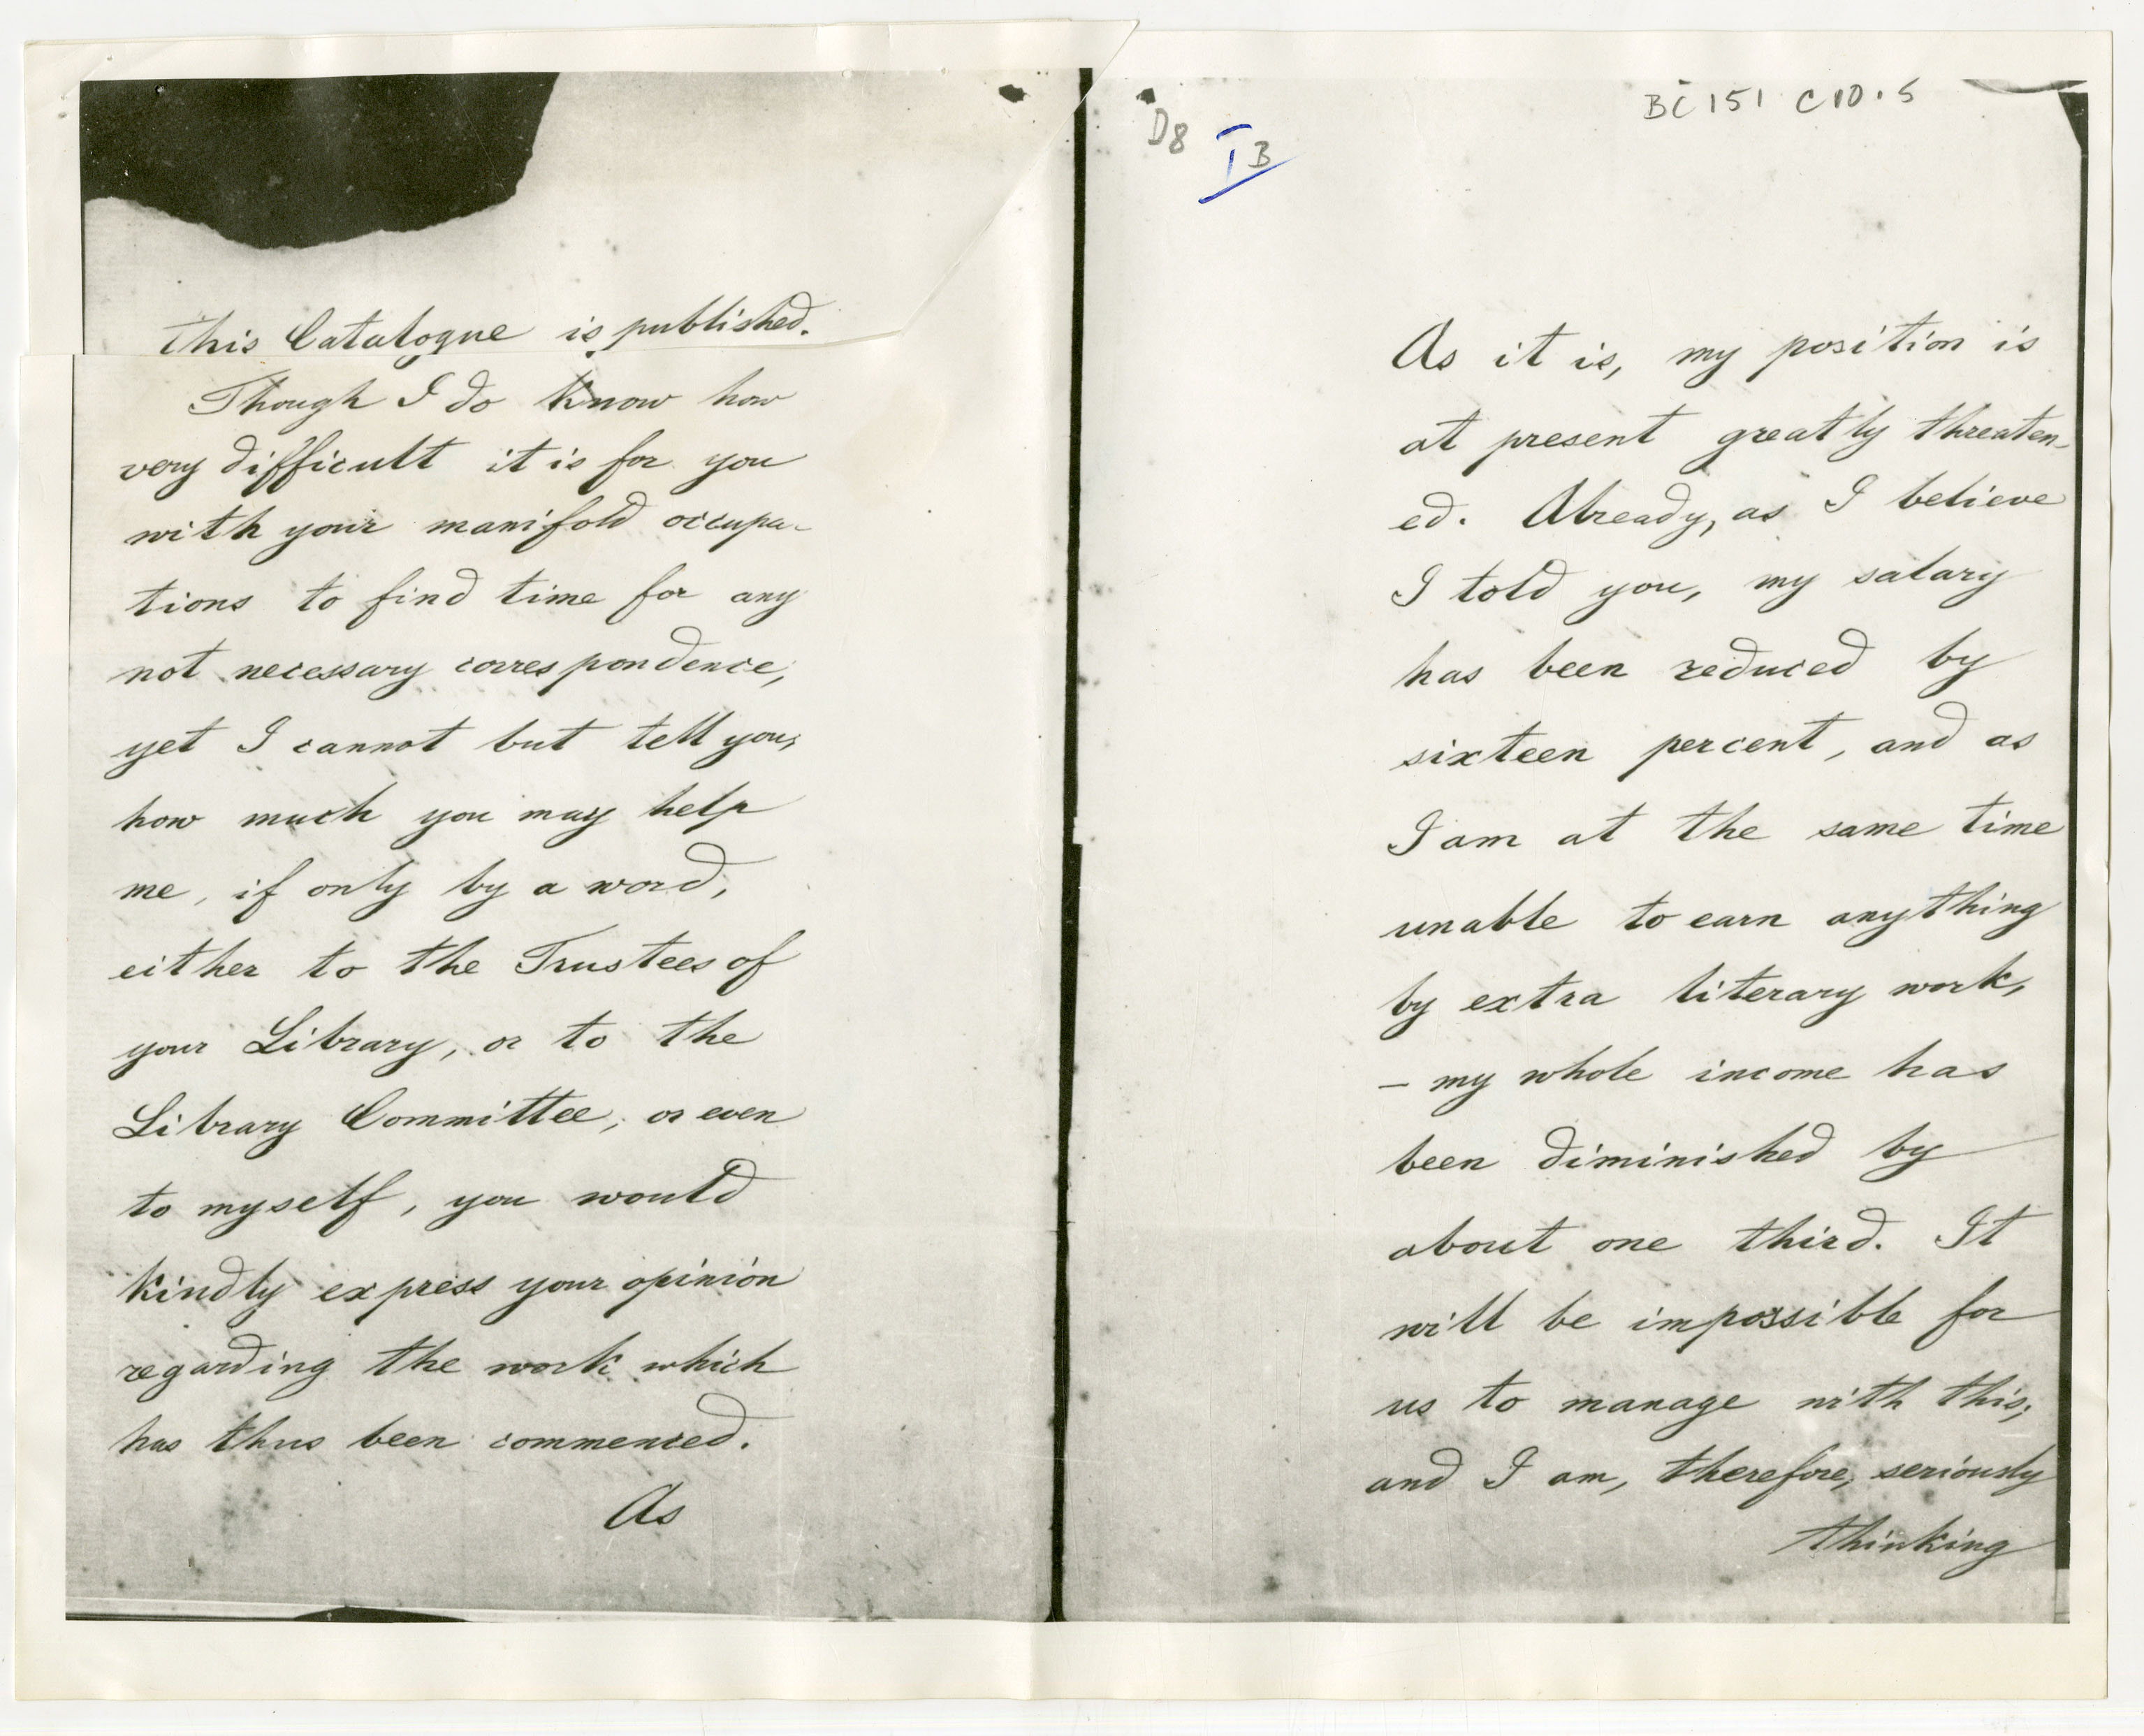 this Catalogue is published.
Though I do know how
very difficult it is for you
with your manifold occupa-
tions to find time for any
not necessary correspondence,
yet I cannot but tell you,
how much you may help
me, if only by a word,
either to the Trustees of
your Library, or to the
Library Committee, or even
to myself, you would
kindly express your opinion
regarding the work which
has thus been commenced.
As
BC 151 C10.5
D8 I B
As it is, my position is
at present greatly threaten-
ed. Already, as I believe
I told you, my salary
has been reduced by
sixteen percent, and as
I am at the same time
unable to earn anything
by extra literary work,
— my whole income has
been diminished by
about one third. It
will be impossible for
us to manage with this;
and I am, therefore, seriously
thinking